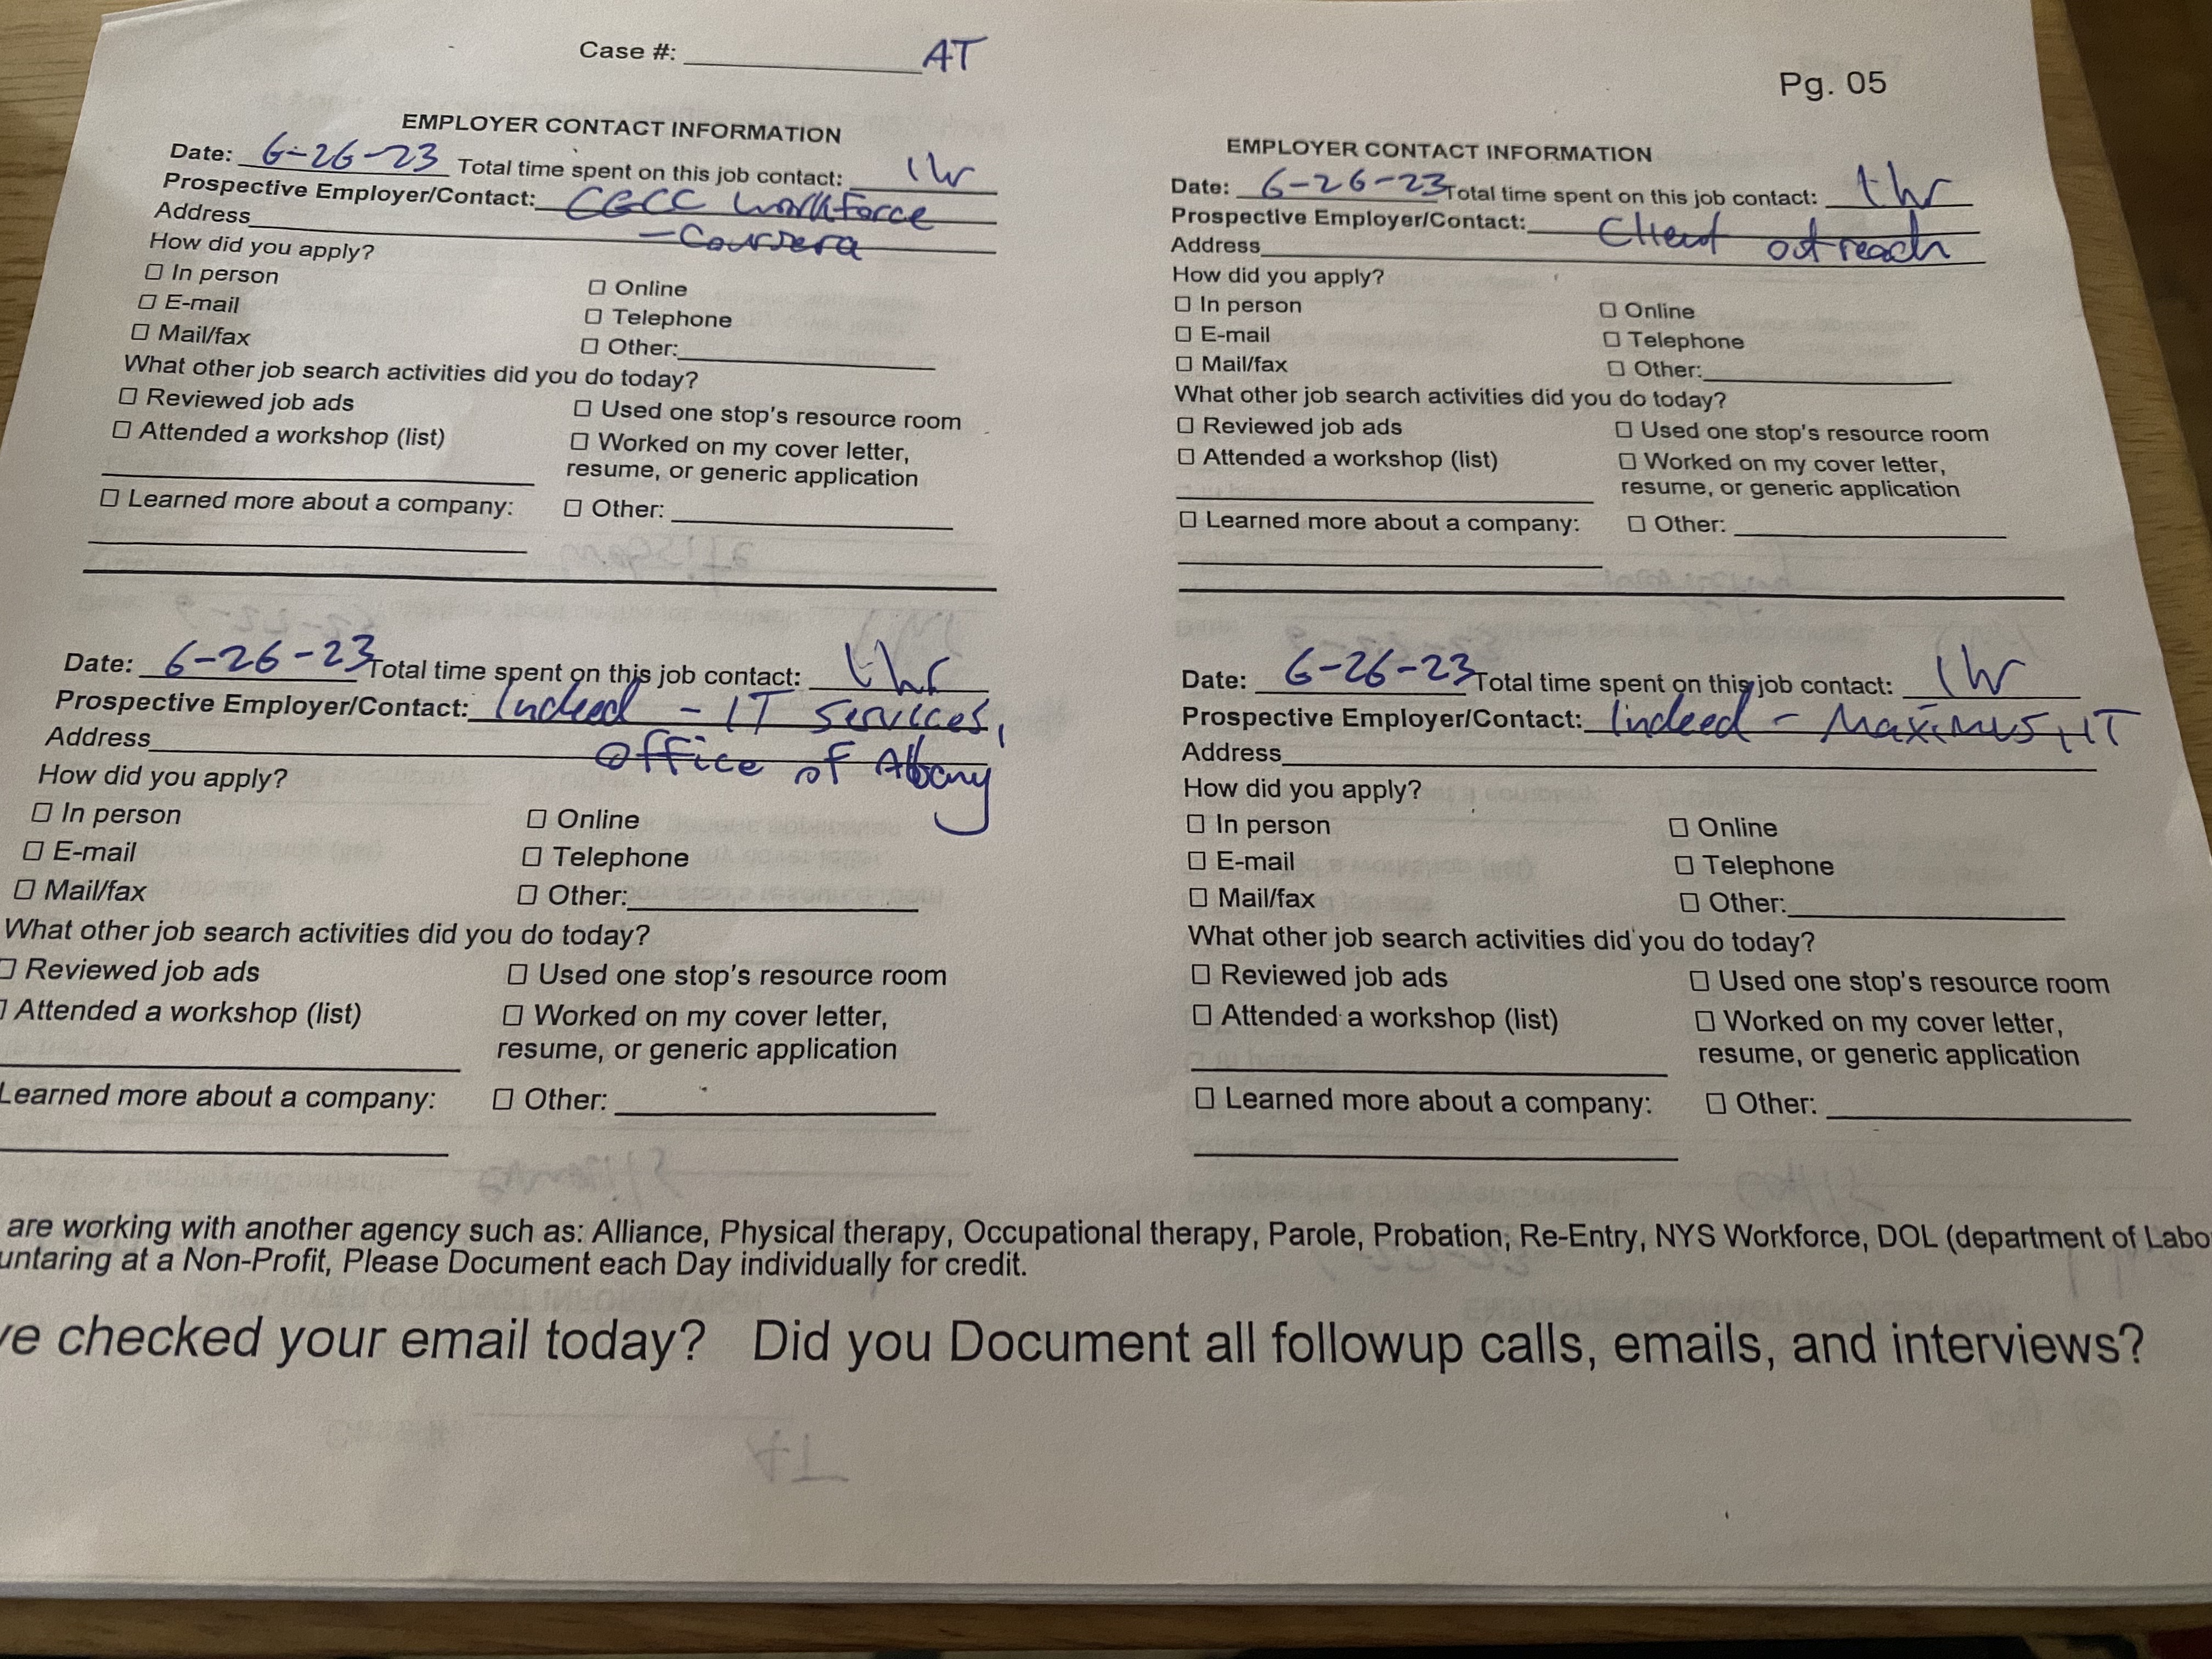 Case #: AT
Pg. 05
EMPLOYER CONTACT INFORMATION
Date: 6-26-23 Total time spent on this job contact: 1hr
Prospective Employer/Contact: CGCC Workforce
Address - Coursera
How did you apply?
☐ In person ☐ Online
☐ E-mail ☐ Telephone
☐ Mail/fax ☐ Other:
What other job search activities did you do today?
☐ Reviewed job ads ☐ Used one stop's resource room
☐ Attended a workshop (list) ☐ Worked on my cover letter,
resume, or generic application
☐ Learned more about a company: ☐ Other:
EMPLOYER CONTACT INFORMATION
Date: 6-26-23 Total time spent on this job contact: 1hr
Prospective Employer/Contact: Client outreach
Address
How did you apply?
☐ In person ☐ Online
☐ E-mail ☐ Telephone
☐ Mail/fax ☐ Other:
What other job search activities did you do today?
☐ Reviewed job ads ☐ Used one stop's resource room
☐ Attended a workshop (list) ☐ Worked on my cover letter,
resume, or generic application
☐ Learned more about a company: ☐ Other:
Date: 6-26-23 Total time spent on this job contact: 1hr
Prospective Employer/Contact: Indeed - IT Services,
Address Office of Albany
How did you apply?
☐ In person ☐ Online
☐ E-mail ☐ Telephone
☐ Mail/fax ☐ Other:
What other job search activities did you do today?
☐ Reviewed job ads ☐ Used one stop's resource room
☐ Attended a workshop (list) ☐ Worked on my cover letter,
resume, or generic application
Learned more about a company: ☐ Other:
Date: 6-26-23 Total time spent on this job contact: 1hr
Prospective Employer/Contact: Indeed - Maximus, IT
Address
How did you apply?
☐ In person ☐ Online
☐ E-mail ☐ Telephone
☐ Mail/fax ☐ Other:
What other job search activities did you do today?
☐ Reviewed job ads ☐ Used one stop's resource room
☐ Attended a workshop (list) ☐ Worked on my cover letter,
resume, or generic application
☐ Learned more about a company: ☐ Other:
are working with another agency such as: Alliance, Physical therapy, Occupational therapy, Parole, Probation, Re-Entry, NYS Workforce, DOL (department of Labo
untaring at a Non-Profit, Please Document each Day individually for credit.
ve checked your email today? Did you Document all followup calls, emails, and interviews?